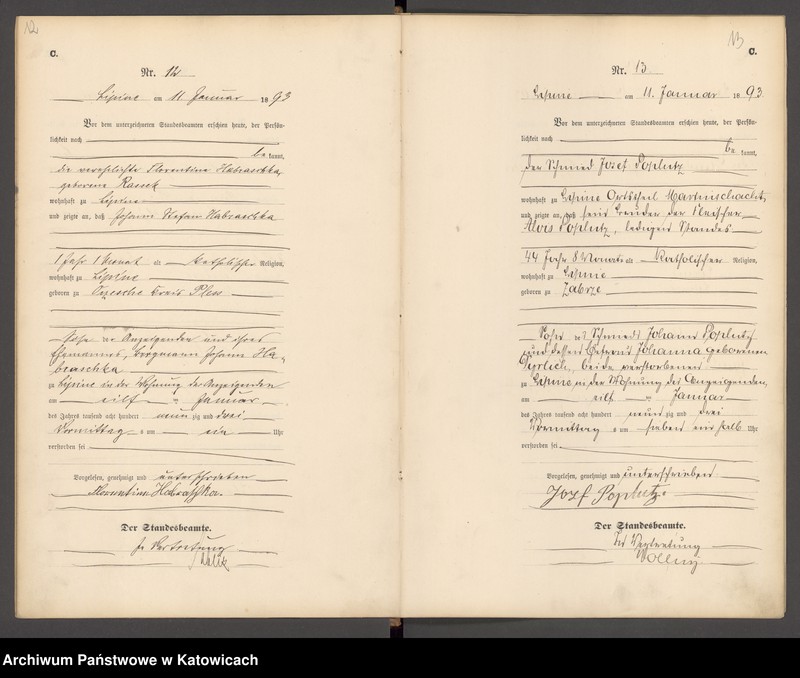 12
C.
Nr. 12
Lipine am 11 Januar 1893
Vor dem unterzeichneten Standesbeamten erschien heute, der Persön-
lichkeit nach
be kannt,
die verehelichte Florentine Habraschka,
geborene
wohnhaft zu Lipine
und zeigte an, daß Johann Stefan Habraschka
1 Jahr 1 Monat alt katholischer Religion,
wohnhaft zu Lipine
geboren zu Kreis Pless
Sohn der Anzeigenden und ihres
Ehemannes, Bergmann Johann Ha-
braschka
zu Lipine in der Wohnung der Anzeigenden
am eilf ten Januar
des Jahres tausend acht hundert neun zig und drei
Vormittag s um ein Uhr
verstorben sei
Vorgelesen, genehmigt und unterschrieben
Florentine Habraschka.
Der Standesbeamte.
In Vertretung
13
C.
Nr. 13
Lipine am 11. Januar 1893
Vor dem unterzeichneten Standesbeamten erschien heute, der Persön-
lichkeit nach
be kannt,
der Schmied Josef Poplutz
wohnhaft zu Lipine Ortstheil Martinschacht,
und zeigte an, daß sein Bruder der Fleischer
Alois Poplutz, ledigen Standes
44 Jahr 8 Monate alt Katholischer Religion,
wohnhaft zu Lipine
geboren zu Zabrze
Sohn des Schmieds Johann Poplutz
und dessen Ehefrau Johanna geborenen
beide verstorben
zu Lipine in der Wohnung des Anzeigenden,
am eilf ten Januar
des Jahres tausend acht hundert neun zig und drei
Vormittag s um sieben ein halb Uhr
verstorben sei.
Vorgelesen, genehmigt und unterschrieben
Jozf Poplutz.
Der Standesbeamte.
In Vertretung
Archiwum Państwowe w Katowicach